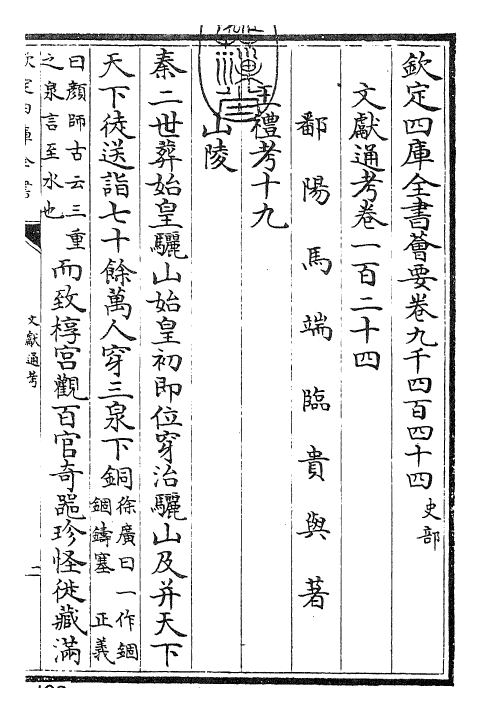 欽定四庫全書薈要卷九千四百四十四 史部
文獻通考卷一百二十四
鄱陽馬端臨貴與著
王禮考十九
山陵
秦二世葬始皇驪山始皇初即位穿治驪山及并天下
天下徒送詣七十餘萬人穿三泉下銅徐廣曰一作錮錮鑄塞 正義
曰顔師古云三重之泉言至水也而致椁宮觀百官奇噐珍怪徙藏滿
欽定四庫全書
文獻通考